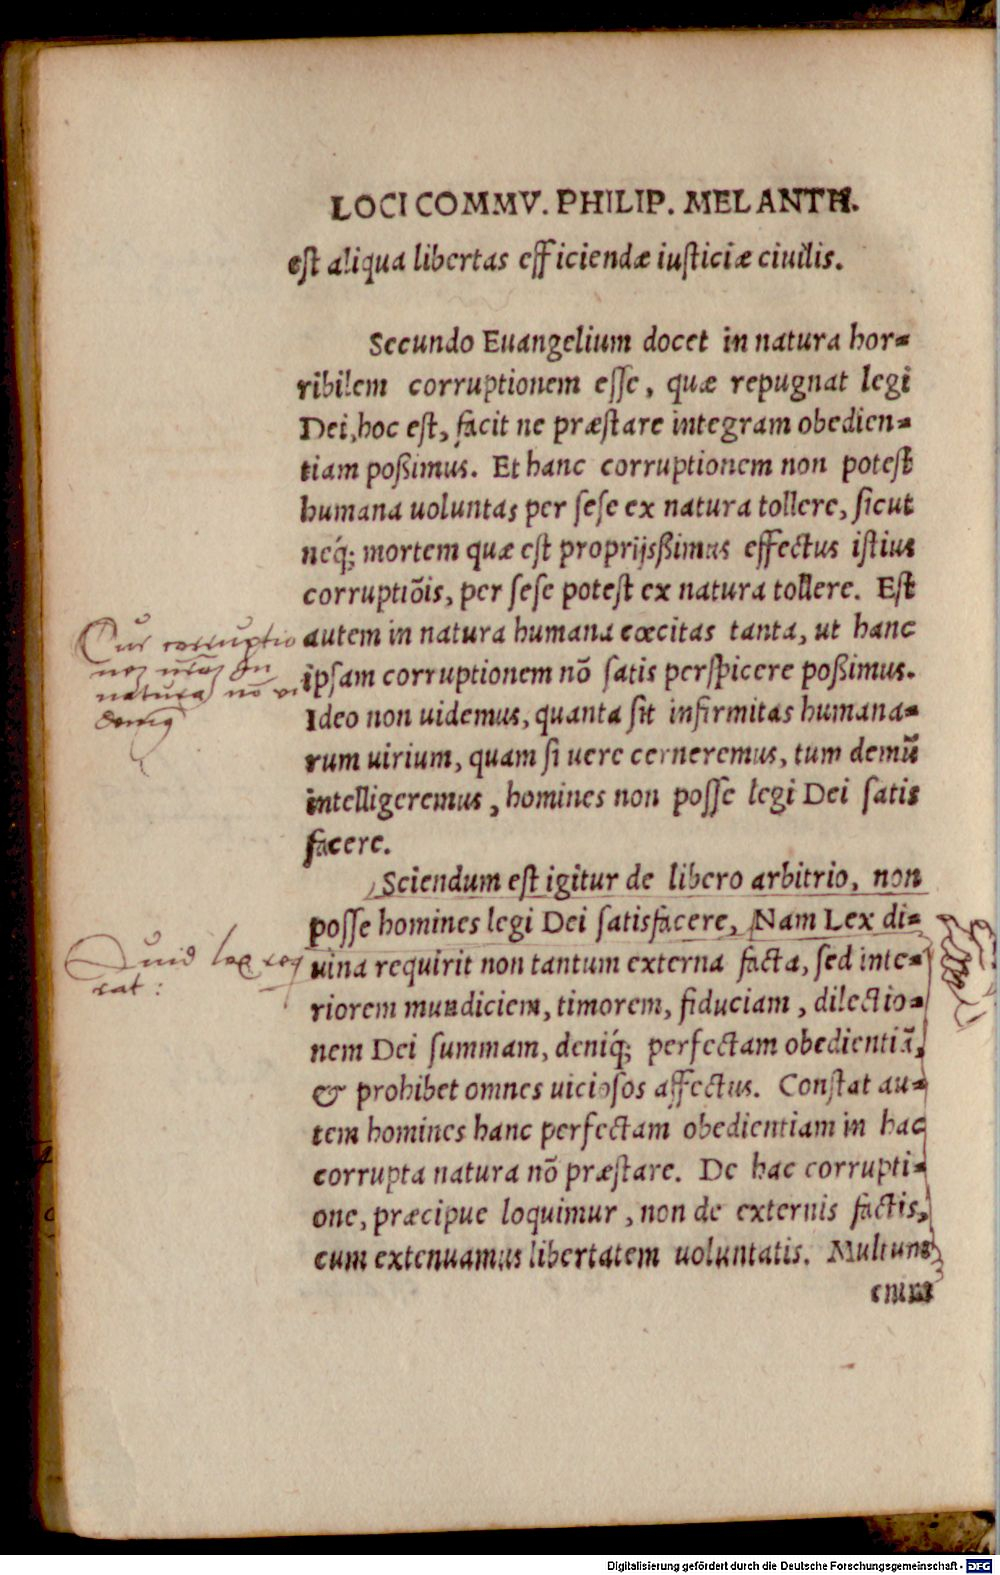 LOCI COMMV. PHILIP. MELANTH.
est aliqua libertas efficiendæ iusticiæ ciuilis.
Secundo Euangelium docet in natura hor=
ribilem corruptionem esse, quæ repugnat legi
Dei, hoc est, facit ne præstare integram obedien=
tiam poßimus. Et hanc corruptionem non potest
humana uoluntas per sese ex natura tollere, sicut
neq́; mortem quæ est proprijsßimus effectus istius
corruptiõis, per sese potest ex natura tollere. Est
autem in natura humana cœcitas tanta, ut hanc
ipsam corruptionem nõ satis perspicere poßimus.
Ideo non uidemus, quanta sit infirmitas humana=
rum uirium, quam si uere cerneremus, tum demũ
intelligeremus, homines non posse legi Dei satis
facere.
Sciendum est igitur de libero arbitrio, non
posse homines legi Dei satisfacere, Nam Lex di=
uina requirit non tantum externa facta, sed inte=
riorem mundiciem, timorem, fiduciam, dilectio=
nem Dei summam, deniq́; perfectam obedientiã,
& prohibet omnes uiciosos affectus. Constat au=
tem homines hanc perfectam obedientiam in hac
corrupta natura nõ præstare. De hac corrupti=
one, præcipue loquimur, non de externis factis,
cum extenuamus libertatem uoluntatis. Multum
enim
Cur corruptio
natura nõ vi
Quid lex req
rat:
Digitalisierung gefördert durch die Deutsche Forschungsgemeinschaft - DFG